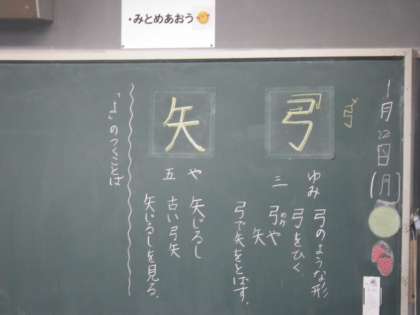 ・みとめあおう
1月22日(月)
弓
弓
ゆみ
三
弓のような形
弓をひく
弓矢
ゆみや
弓で矢をとばす。
矢
や
五
矢じるし
古い弓矢
矢じるしを見る。
「よ」のつくことば